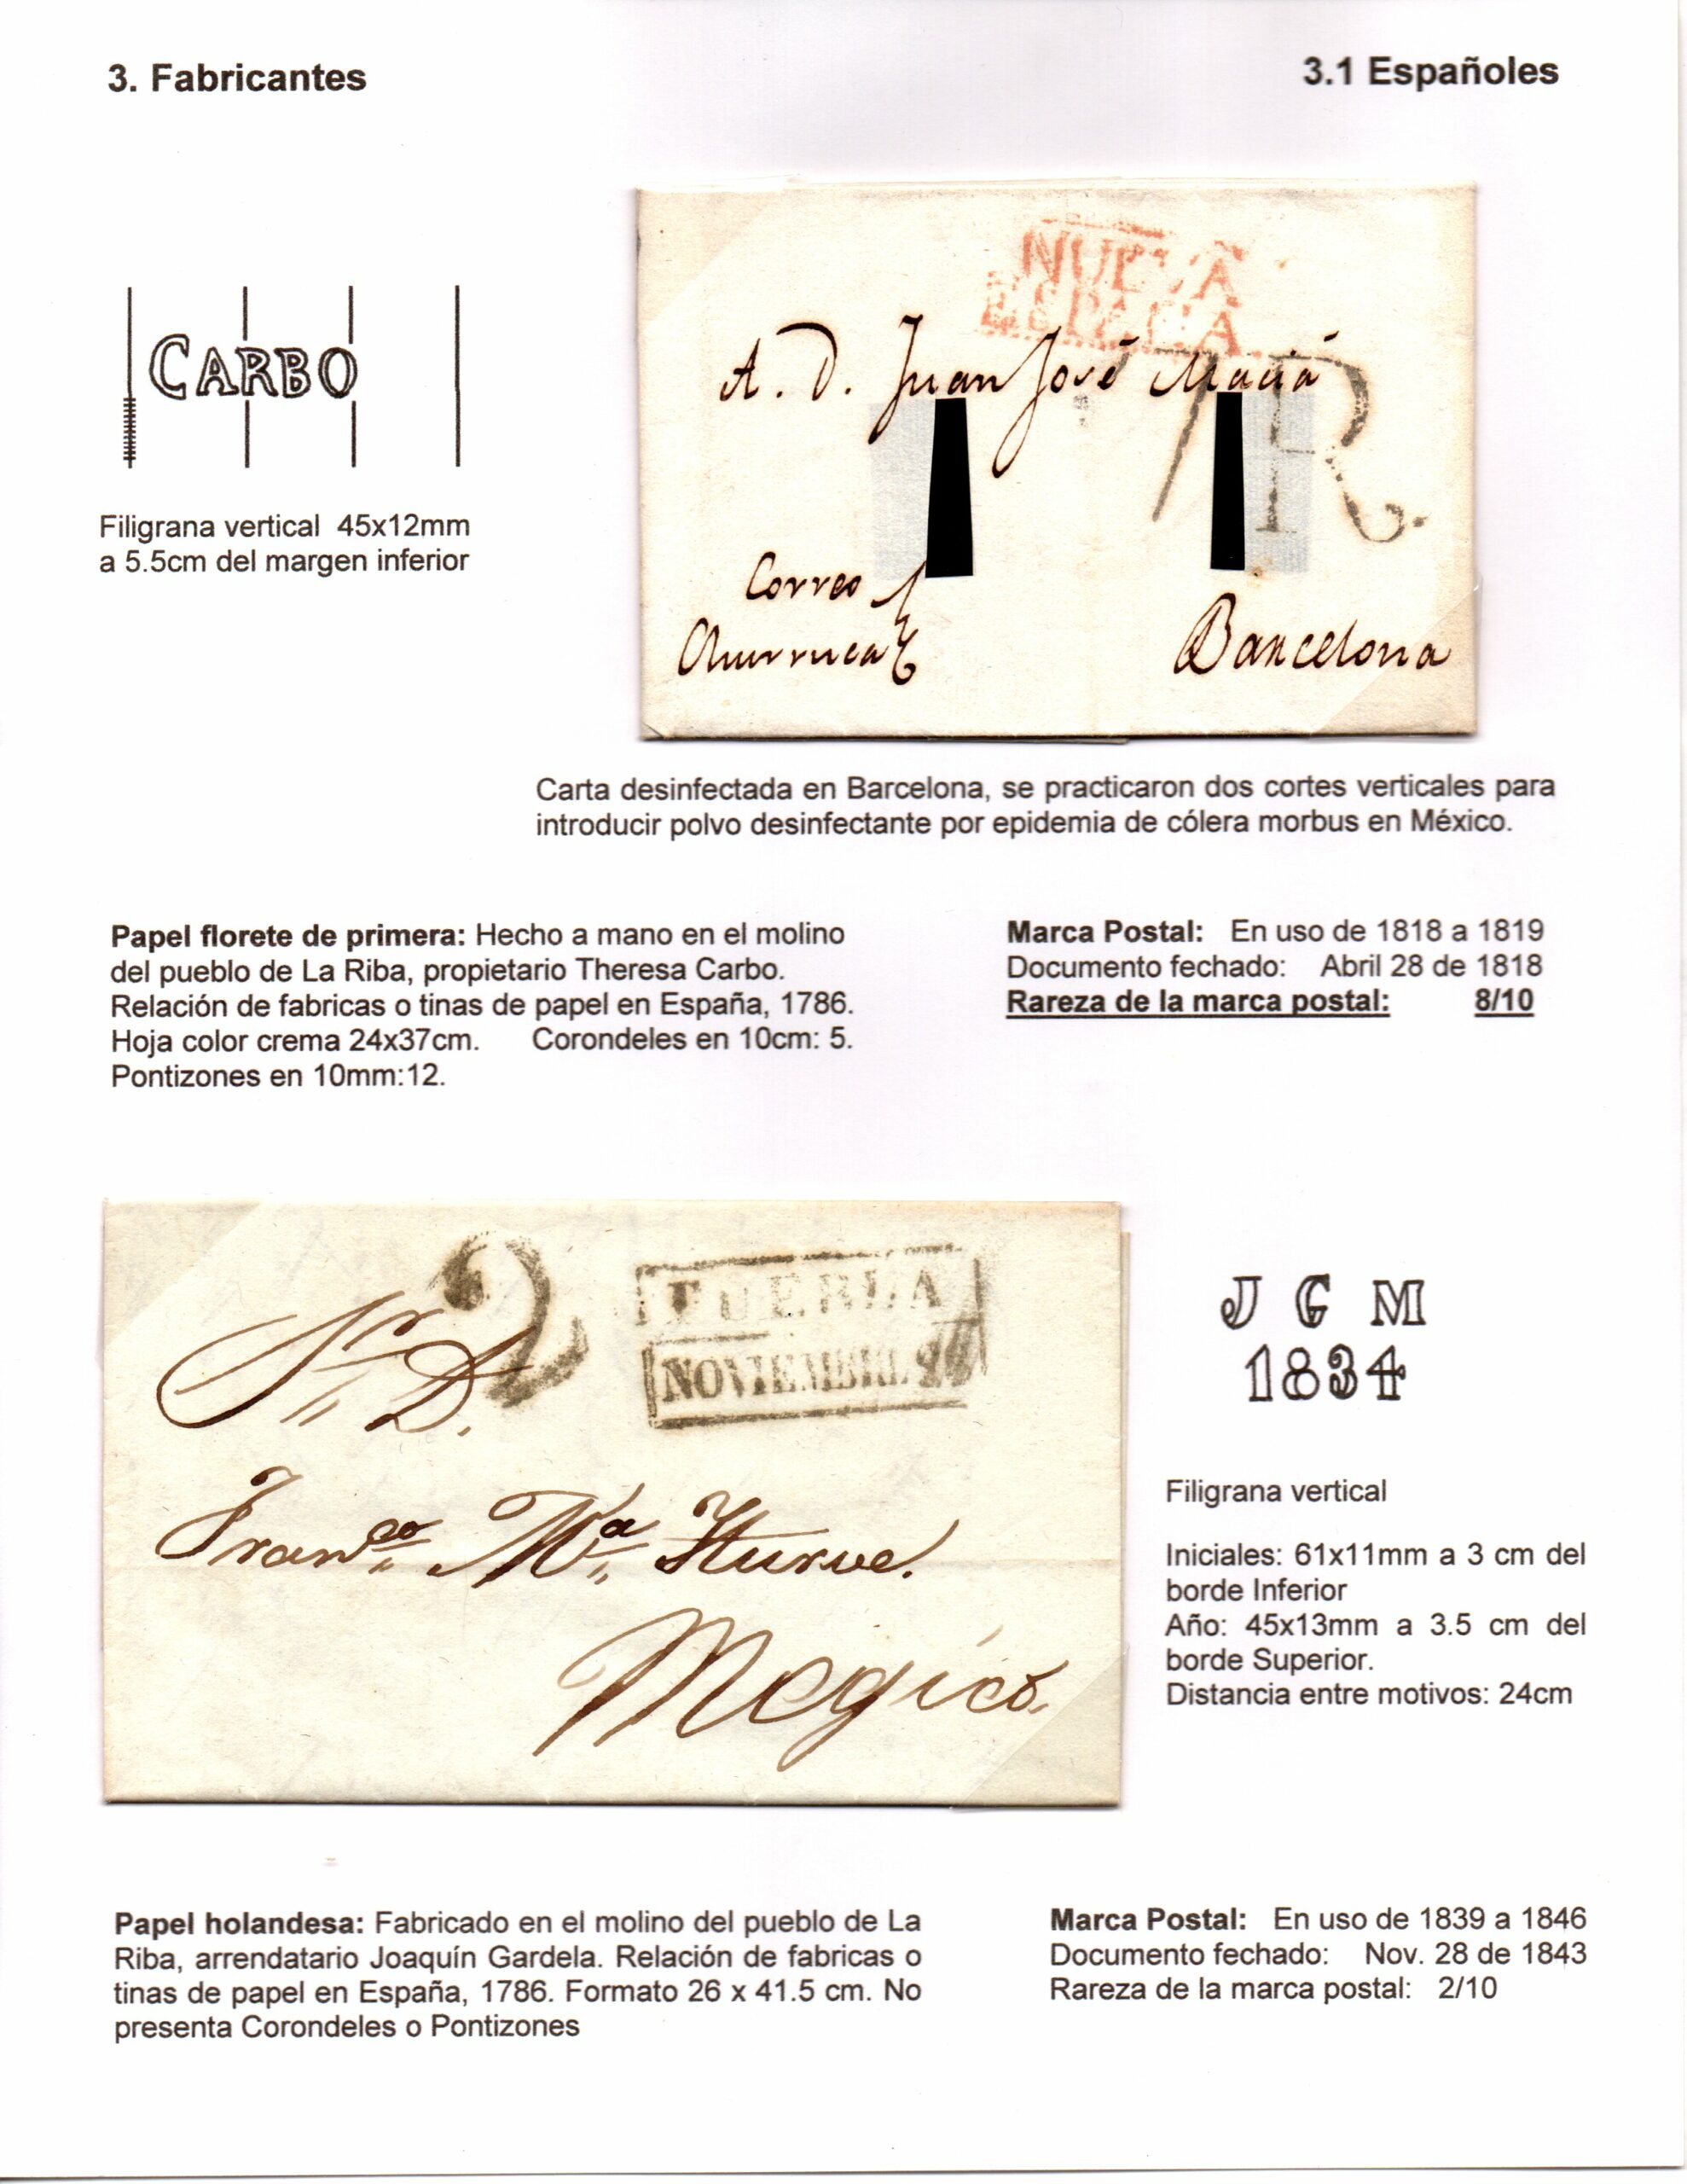 3. Fabricantes
3.1 Españoles
CARBO
Filigrana vertical 45x12mm
a 5.5cm del margen inferior
NUEVA
ESPAÑA
A. D. Juan José Maciá
7R
Correo
Churruca
Barcelona
Carta desinfectada en Barcelona, se practicaron dos cortes verticales para
introducir polvo desinfectante por epidemia de cólera morbus en México.
Papel florete de primera: Hecho a mano en el molino
del pueblo de La Riba, propietario Theresa Carbo.
Relación de fabricas o tinas de papel en España, 1786.
Hoja color crema 24x37cm. Corondeles en 10cm: 5.
Pontizones en 10mm:12.
Marca Postal: En uso de 1818 a 1819
Documento fechado: Abril 28 de 1818
Rareza de la marca postal: 8/10
2
PUEBLA
NOVIEMBRE
Sr. D.
Franco Ma Iturve.
Megico.
J G M
1834
Filigrana vertical
Iniciales: 61x11mm a 3 cm del
borde Inferior
Año: 45x13mm a 3.5 cm del
borde Superior.
Distancia entre motivos: 24cm
Papel holandesa: Fabricado en el molino del pueblo de La
Riba, arrendatario Joaquín Gardela. Relación de fabricas o
tinas de papel en España, 1786. Formato 26 x 41.5 cm. No
presenta Corondeles o Pontizones
Marca Postal: En uso de 1839 a 1846
Documento fechado: Nov. 28 de 1843
Rareza de la marca postal: 2/10